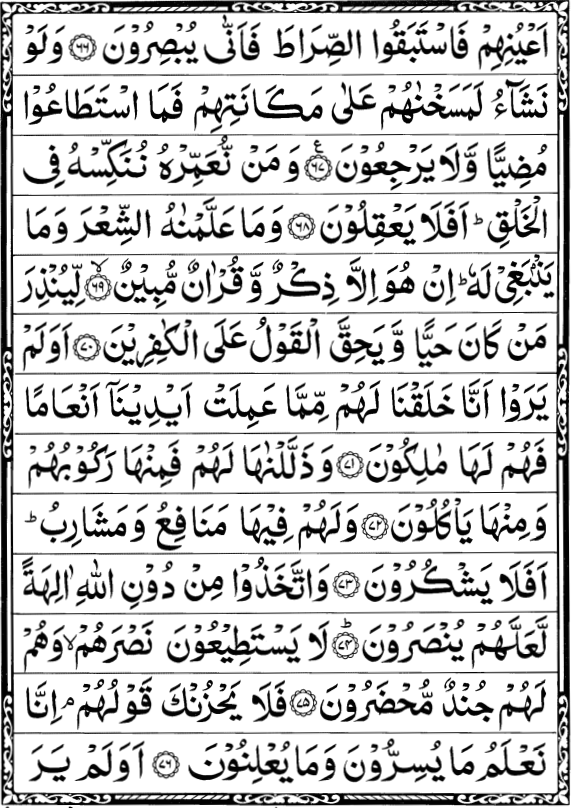 اَعۡيُنِهِمۡ فَاسۡتَبَقُوا الصِّرَاطَ فَاَنّٰى يُبۡصِرُوۡنَ ﴿۶۶﴾ وَلَوۡ
نَشَآءُ لَمَسَخۡنٰهُمۡ عَلٰى مَكَانَتِهِمۡ فَمَا اسۡتَطَاعُوۡا
مُضِيًّا وَّلَا يَرۡجِعُوۡنَ ﴿۶۷﴾ ع وَمَنۡ نُّعَمِّرۡهُ نُنَكِّسۡهُ فِى
الۡخَلۡقِ ؕ اَفَلَا يَعۡقِلُوۡنَ ﴿۶۸﴾ وَمَا عَلَّمۡنٰهُ الشِّعۡرَ وَمَا
يَنۡۢبَغِىۡ لَهٗ ؕ اِنۡ هُوَ اِلَّا ذِكۡرٌ وَّقُرۡاٰنٌ مُّبِيۡنٌ ۙ﴿۶۹﴾ لِّيُنۡذِرَ
مَنۡ كَانَ حَيًّا وَّيَحِقَّ الۡقَوۡلُ عَلَى الۡكٰفِرِيۡنَ ﴿۷۰﴾ اَوَلَمۡ
يَرَوۡا اَنَّا خَلَقۡنَا لَهُمۡ مِّمَّا عَمِلَتۡ اَيۡدِيۡنَاۤ اَنۡعَامًا
فَهُمۡ لَهَا مٰلِكُوۡنَ ﴿۷۱﴾ وَذَلَّلۡنٰهَا لَهُمۡ فَمِنۡهَا رَكُوۡبُهُمۡ
وَمِنۡهَا يَاۡكُلُوۡنَ ﴿۷۲﴾ وَلَهُمۡ فِيۡهَا مَنَافِعُ وَمَشَارِبُ ؕ
اَفَلَا يَشۡكُرُوۡنَ ﴿۷۳﴾ وَاتَّخَذُوۡا مِنۡ دُوۡنِ اللّٰهِ اٰلِهَةً
لَّعَلَّهُمۡ يُنۡصَرُوۡنَ ؕ﴿۷۴﴾ لَا يَسۡتَطِيۡعُوۡنَ نَصۡرَهُمۡ ۙ وَهُمۡ
لَهُمۡ جُنۡدٌ مُّحۡضَرُوۡنَ ﴿۷۵﴾ فَلَا يَحۡزُنۡكَ قَوۡلُهُمۡ ۘ اِنَّا
نَعۡلَمُ مَا يُسِرُّوۡنَ وَمَا يُعۡلِنُوۡنَ ﴿۷۶﴾ اَوَلَمۡ يَرَ